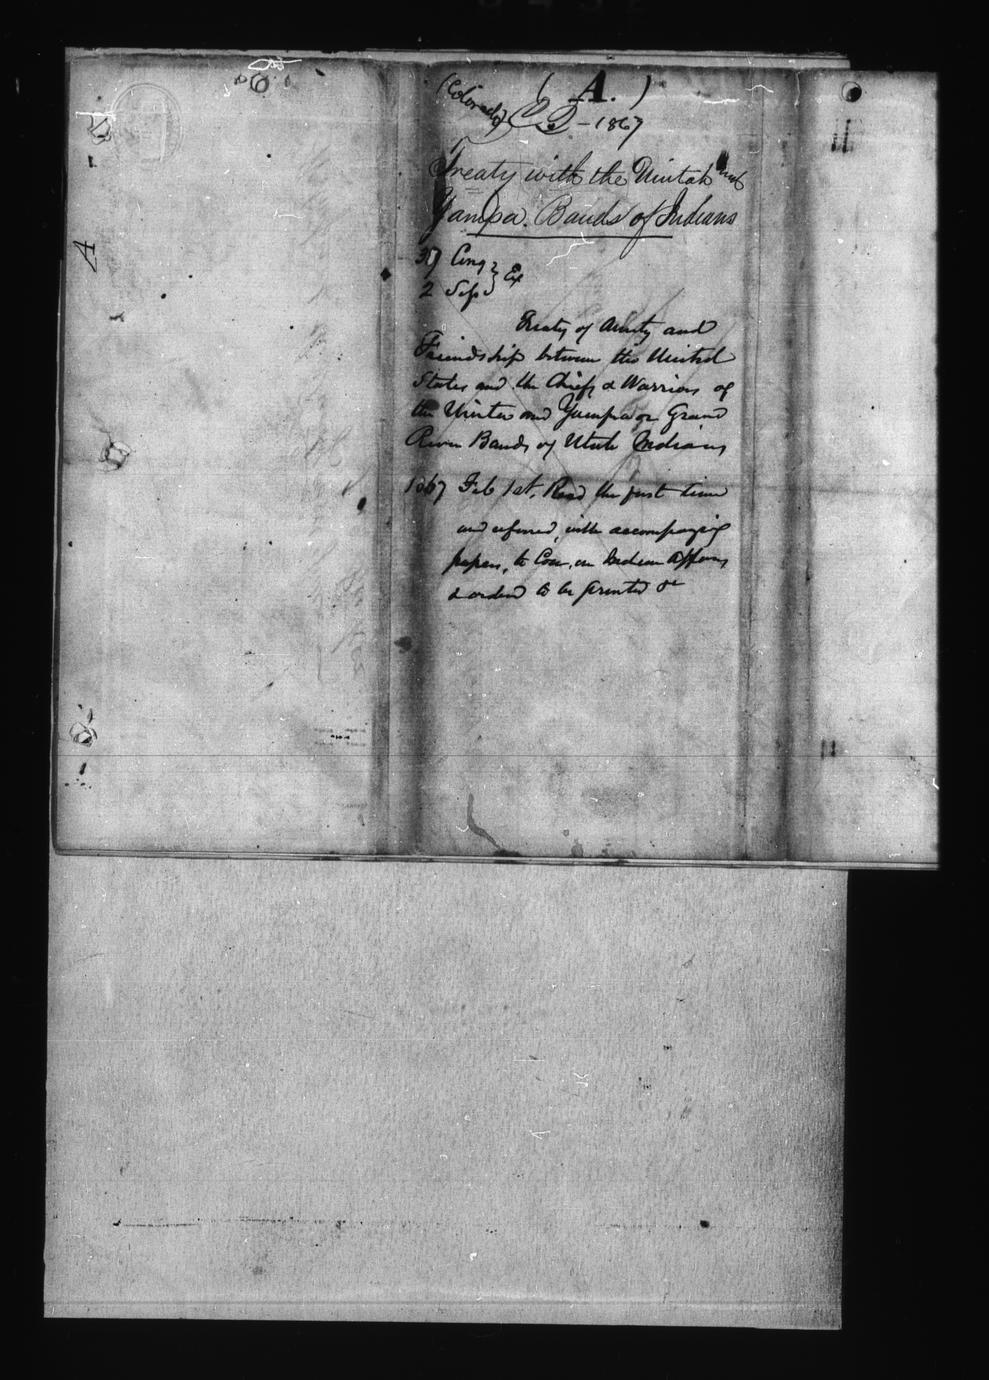 (A.)
(Colorado) C.D - 1867
Treaty with the Uintah and
Yampa Bands of Indians
39 Cong } Ex
2 Sess
Treaty of Amity and
Friendship between the United
States and the Chiefs & Warriors of
the Uinta and Yampa or Grand
River Bands of Utah Indians
1867 Feb 1st. Read the first time
and referred, with accompanying
papers, to Com. on Indian Affairs
& ordered to be printed &c
A